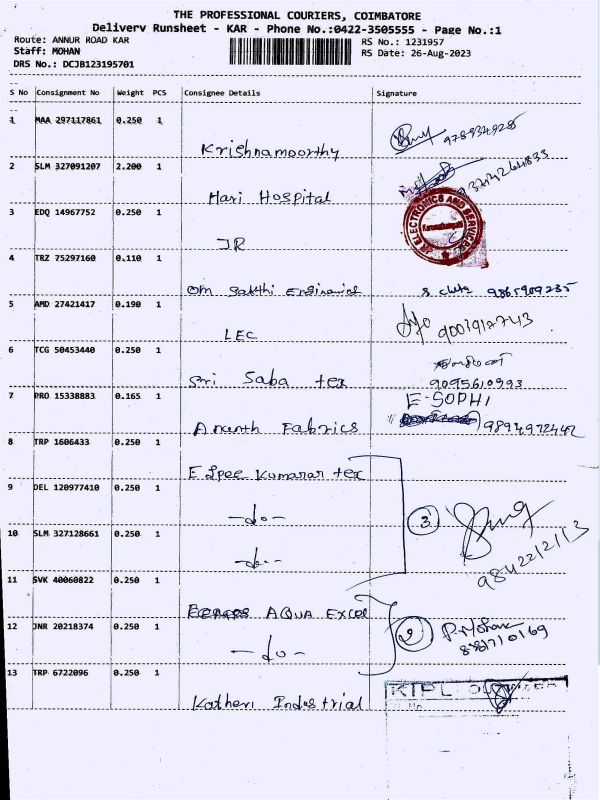 THE PROFESSIONAL COURIERS, COIMBATORE
Delivery Runsheet - KAR - Phone No.:0422-3505555 - Page No.:1
Route: ANNUR ROAD KAR
RS No.: 1231957
Staff: MOHAN
RS Date: 26-Aug-2023
DRS No.: DCJB123195701
S No Consignment No Weight PCS Consignee Details Signature
1 MAA 297117861 0.250 1
Krishnamoorthy
2 SLM 327091207 2.200 1
Hari Hospital
3 EDQ 14967752 0.250 1
JR ELECTRONICS AND SERVICES
JR
4 TRZ 75297160 0.110 1
Om Sakthi Enginairing 9865909235
5 AMD 27421417 0.190 1
LEC
6 TCG 50453440 0.250 1
Sri Saba tex 9095610993
7 PRO 15338883 0.165 1 E-SOPHI
Ananth Fabrics 9894972442
8 TRP 1606433 0.250 1
Kumaran tex
9 DEL 120977410 0.250 1
-do- 3
10 SLM 327128661 0.250 1
-do- 9842212113
11 SVK 40060822 0.250 1
AQUA EXCEL
12 JNR 20218374 0.250 1 2 P. Mohan
-do-
13 TRP 6722096 0.250 1
KIPL
Katheri Industrial